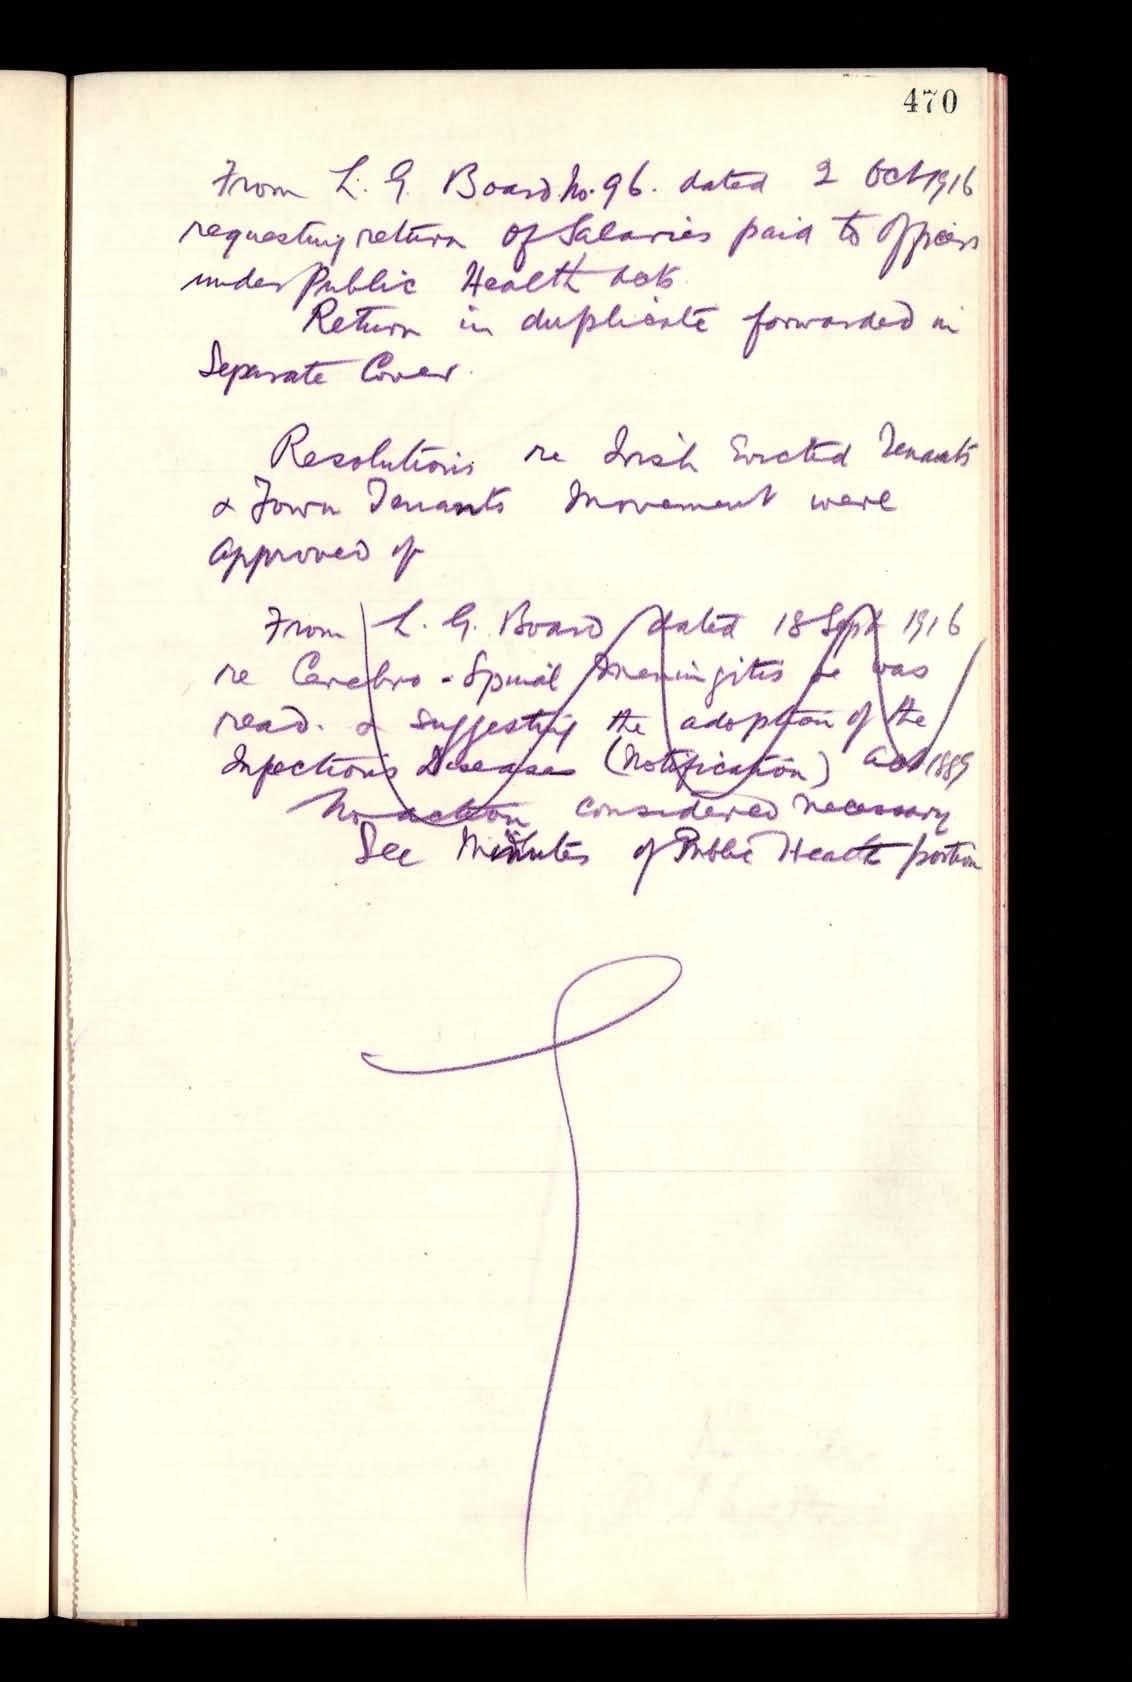 470
From L. G. Board No. 96. dated 2 Oct 1916
requesting return of Salaries paid to Officers
under Public Health Acts
Return in duplicate forwarded in
Separate Cover.
Resolutions re Irish Evicted Tenants
& Town Tenants Movement were
approved of
From L. G. Board dated 18 Sept 1916
re Cerebro-Spinal Meningitis &c was
read. & suggesting the adoption of the
Infectious Diseases (Notification) Act 1889
No action considered necessary
See Minutes of Public Health portion